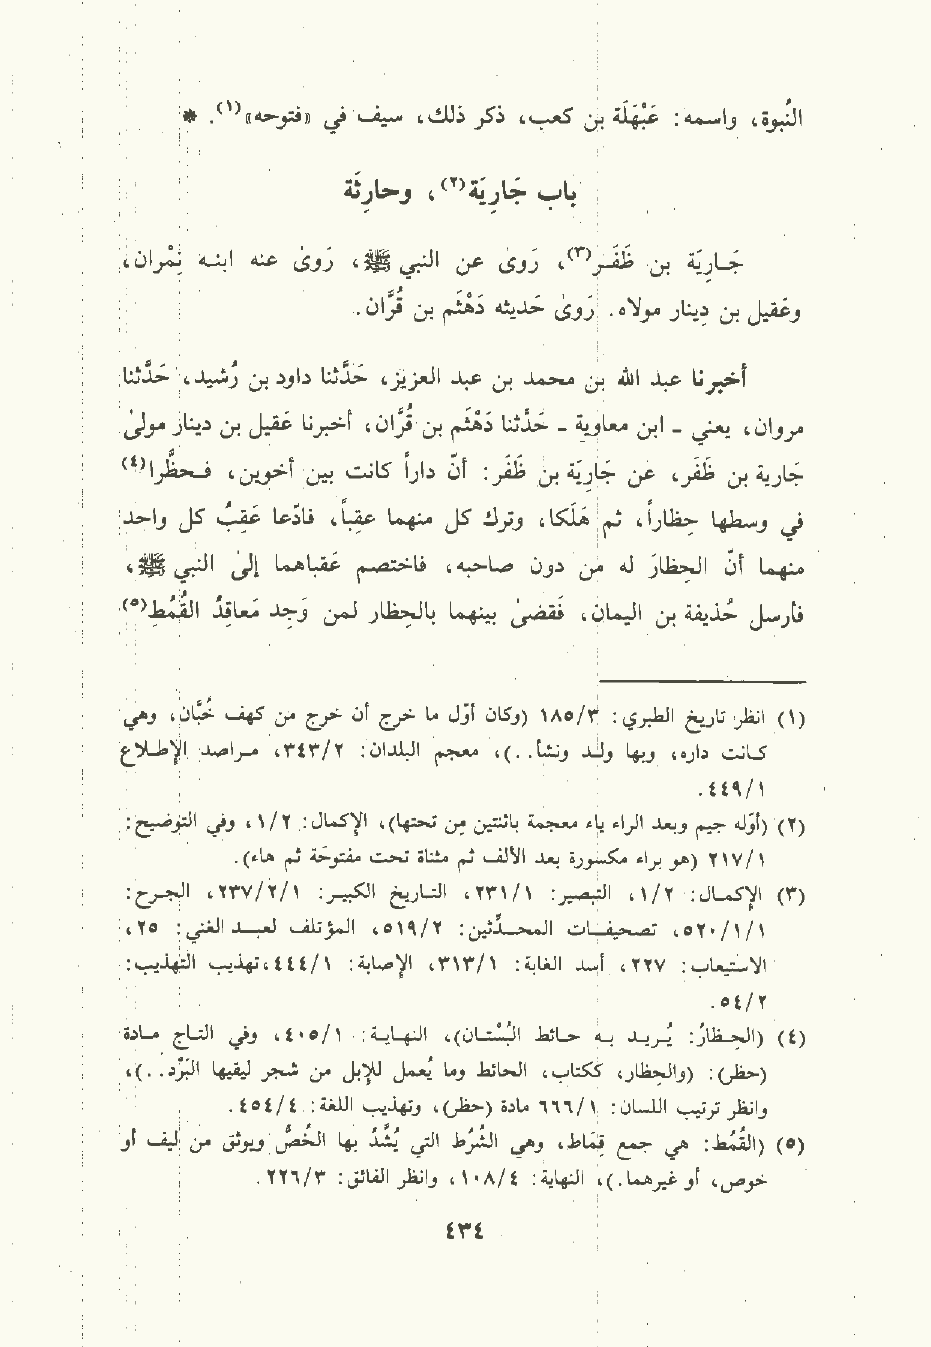 النُبوة، واسمه: عَبْهَلَة بن كعب، ذكر ذلك، سيف في «فتوحه»(١). *
باب جَارِيَة(٢)، وحارِثَة
جَارِيَة بن ظَفَر(٣)، رَوىٰ عن النبي ﷺ، رَوىٰ عنه ابنه نِمْران،
وعَقيل بن دِينار مولاه. رَوىٰ حَديثه دَهْثَم بن قُرَّان.
أخبرنا عبد الله بن محمد بن عبد العزيز، حَدَّثنا داود بن رُشيد، حَدَّثنا
مروان، يعني - ابن معاوية - حَدَّثنا دَهْثَم بن قُرَّان، أخبرنا عَقيل بن دينار مولىٰ
جَارية بن ظَفَر، عن جَارِيَة بن ظَفَر: أنّ داراً كانت بين أخوين، فحظَّرا(٤)
في وسطها حِظاراً، ثم هَلَكا، وترك كل منهما عقِباً، فادّعا عَقِبُ كل واحد
منهما أنّ الحِظارَ له من دون صاحبه، فاختصم عَقِباهما إلىٰ النبي ﷺ،
فأرسل حُذيفة بن اليمان، فَقضىٰ بينهما بالحِظار لمن وَجد مَعاقِدُ القُمُط(٥)
(١) انظر تاريخ الطبري: ١٨٥/٣ (وكان أوّل ما خرج أن خرج من كهف خُبَّان، وهي
كانت داره، وبها ولد ونشأ..)، معجم البلدان: ٣٤٣/٢، مراصد الإطلاع
٤٤٩/١.
(٢) (أوّله جيم وبعد الراء ياء معجمة باثنتين من تحتها)، الإكمال: ١/٢، وفي التوضيح:
٢١٧/١ (وهو براء مكسورة بعد الألف ثم مثناة تحت مفتوحة ثم هاء).
(٣) الإكمال: ١/٢، التبصير: ٢٣١/١، التاريخ الكبير: ٢٣٧/٢/١، الجرح:
٥٢٠/١/١، تصحيفات المحدّثين: ٥١٩/٢، المؤتلف لعبد الغني: ٢٥،
الاستيعاب: ٢٢٧، أسد الغابة: ٣١٣/١، الإصابة: ٤٤٤/١، تهذيب التهذيب:
٥٤/٢.
(٤) (الحِظارُ: يُريد به حائط البُسْتان)، النهاية: ٤٠٥/١، وفي التاج مادة
(حظر): (والحِظار، ككتاب، الحائط وما يُعمل للإبل من شجر ليقيها البَرْد..)،
وانظر ترتيب اللسان: ٦٦٦/١ مادة (حظر)، وتهذيب اللغة: ٤٥٤/٤.
(٥) (القُمُط: هي جمع قِماط، وهي الشُرُط التي يُشَدُ بها الخُصُّ ويوثق من ليف أو
خوص، أو غيرهما.)، النهاية: ١٠٨/٤، وانظر الفائق: ٢٢٦/٣.
٤٣٤